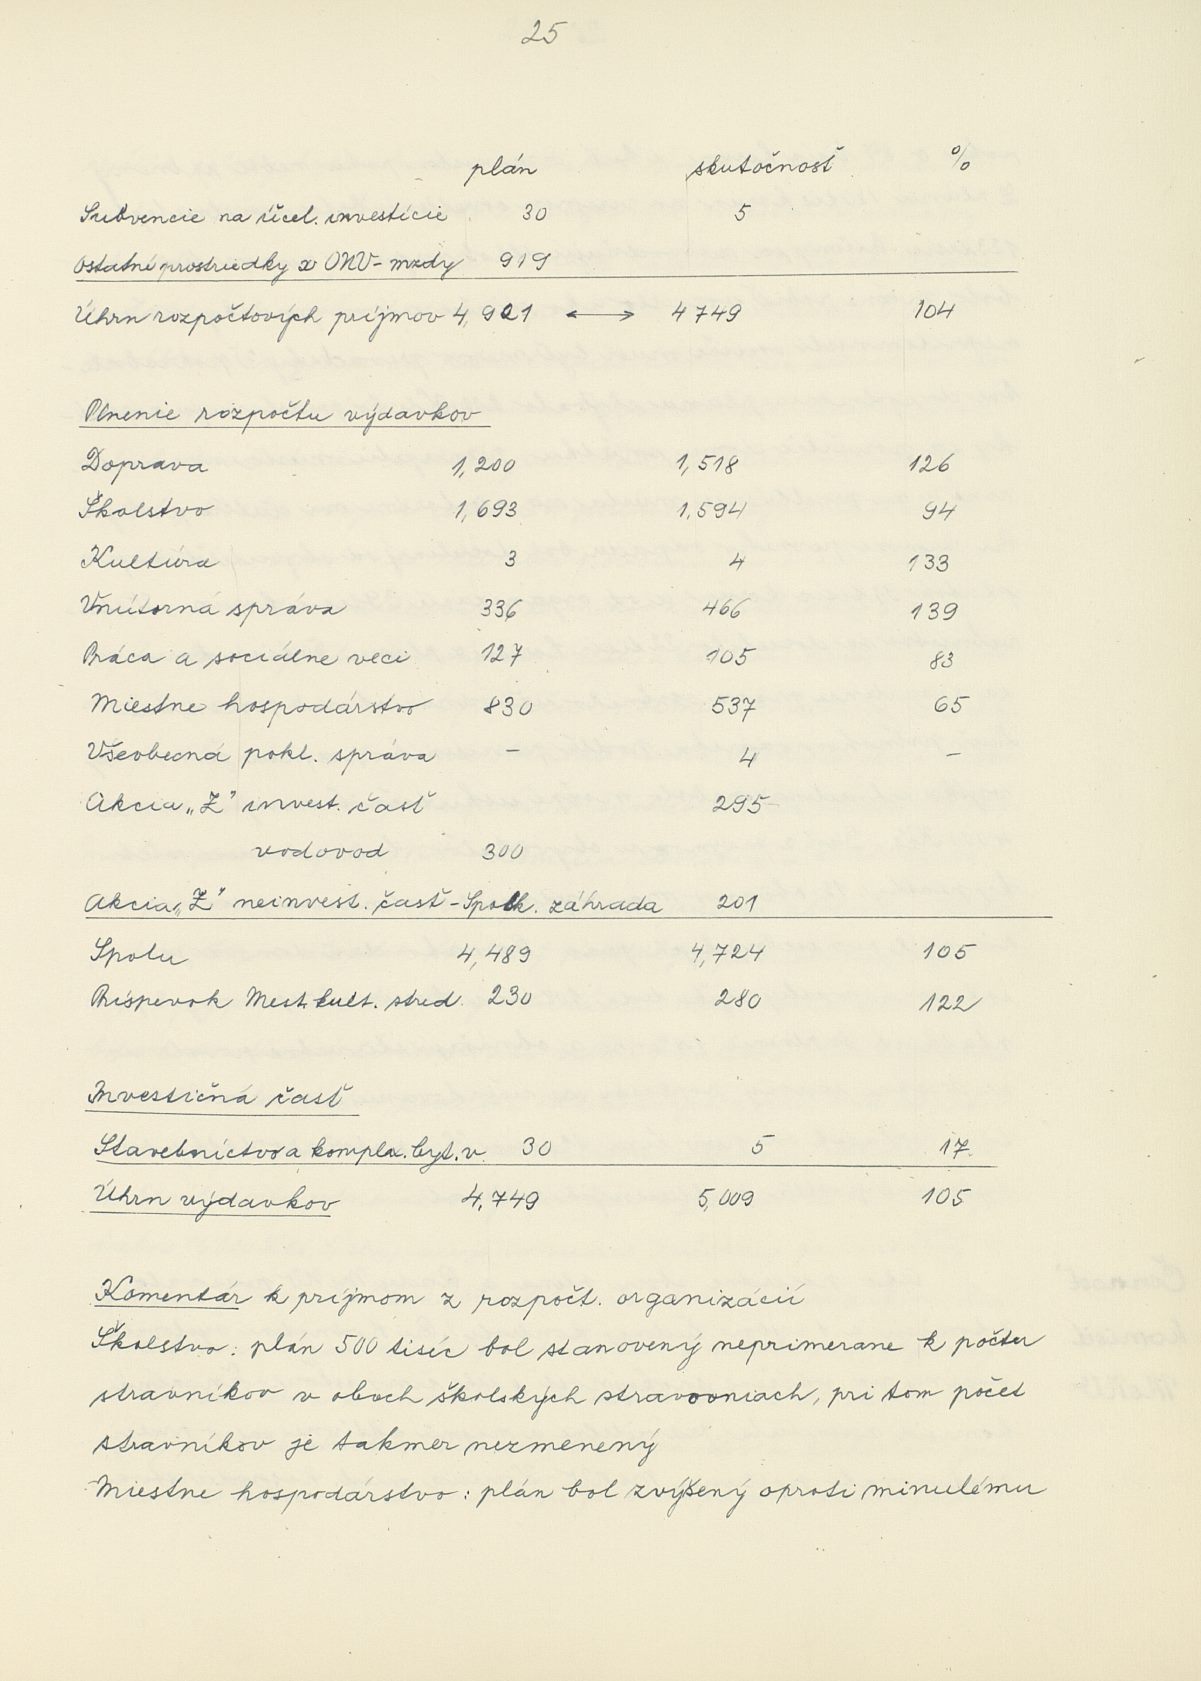 25
plán skutočnosť %
Subvencie na účel. investície 30 5
Ostatné prostriedky z ONV - mzdy 919
Úhrn rozpočtových príjmov 4,921 ⟷ 4749 104
Plnenie rozpočtu výdavkov
Doprava 1,200 1,518 126
Školstvo 1,693 1,594 94
Kultúra 3 4 133
Vnútorná správa 336 466 139
Práca a sociálne veci 127 105 83
Miestne hospodárstvo 830 537 65
Všeobecná pokl. správa - 4 -
Akcia „Z" invest. časť 295
vodovod 300
Akcia „Z" neinvest. časť - Spolk. záhrada 201
Spolu 4,489 4,724 105
Príspevok Mest. kult. stred. 230 280 122
Investičná časť
Stavebníctvo a komplx. byt. v. 30 5 17
Úhrn výdavkov 4,749 5,009 105
Komentár k príjmom z rozpočt. organizácií
Školstvo: plán 500 tisíc bol stanovený neprimerane k počtu
stravníkov v oboch školských stravovniach, pri tom počet
stravníkov je takmer nezmenený
Miestne hospodárstvo: plán bol zvýšený oproti minulému